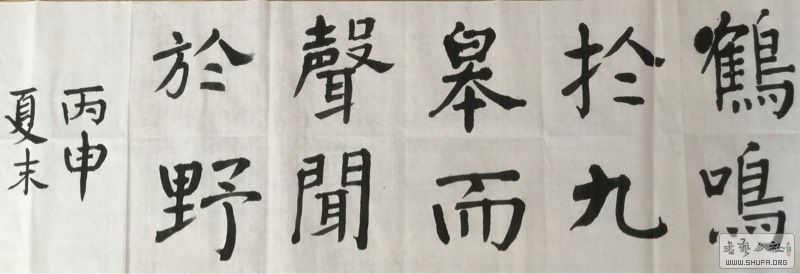 鶴鳴
於九
皋而
聲聞
於野
丙申
夏末
書藝公社
WWW.SHUFA.ORG